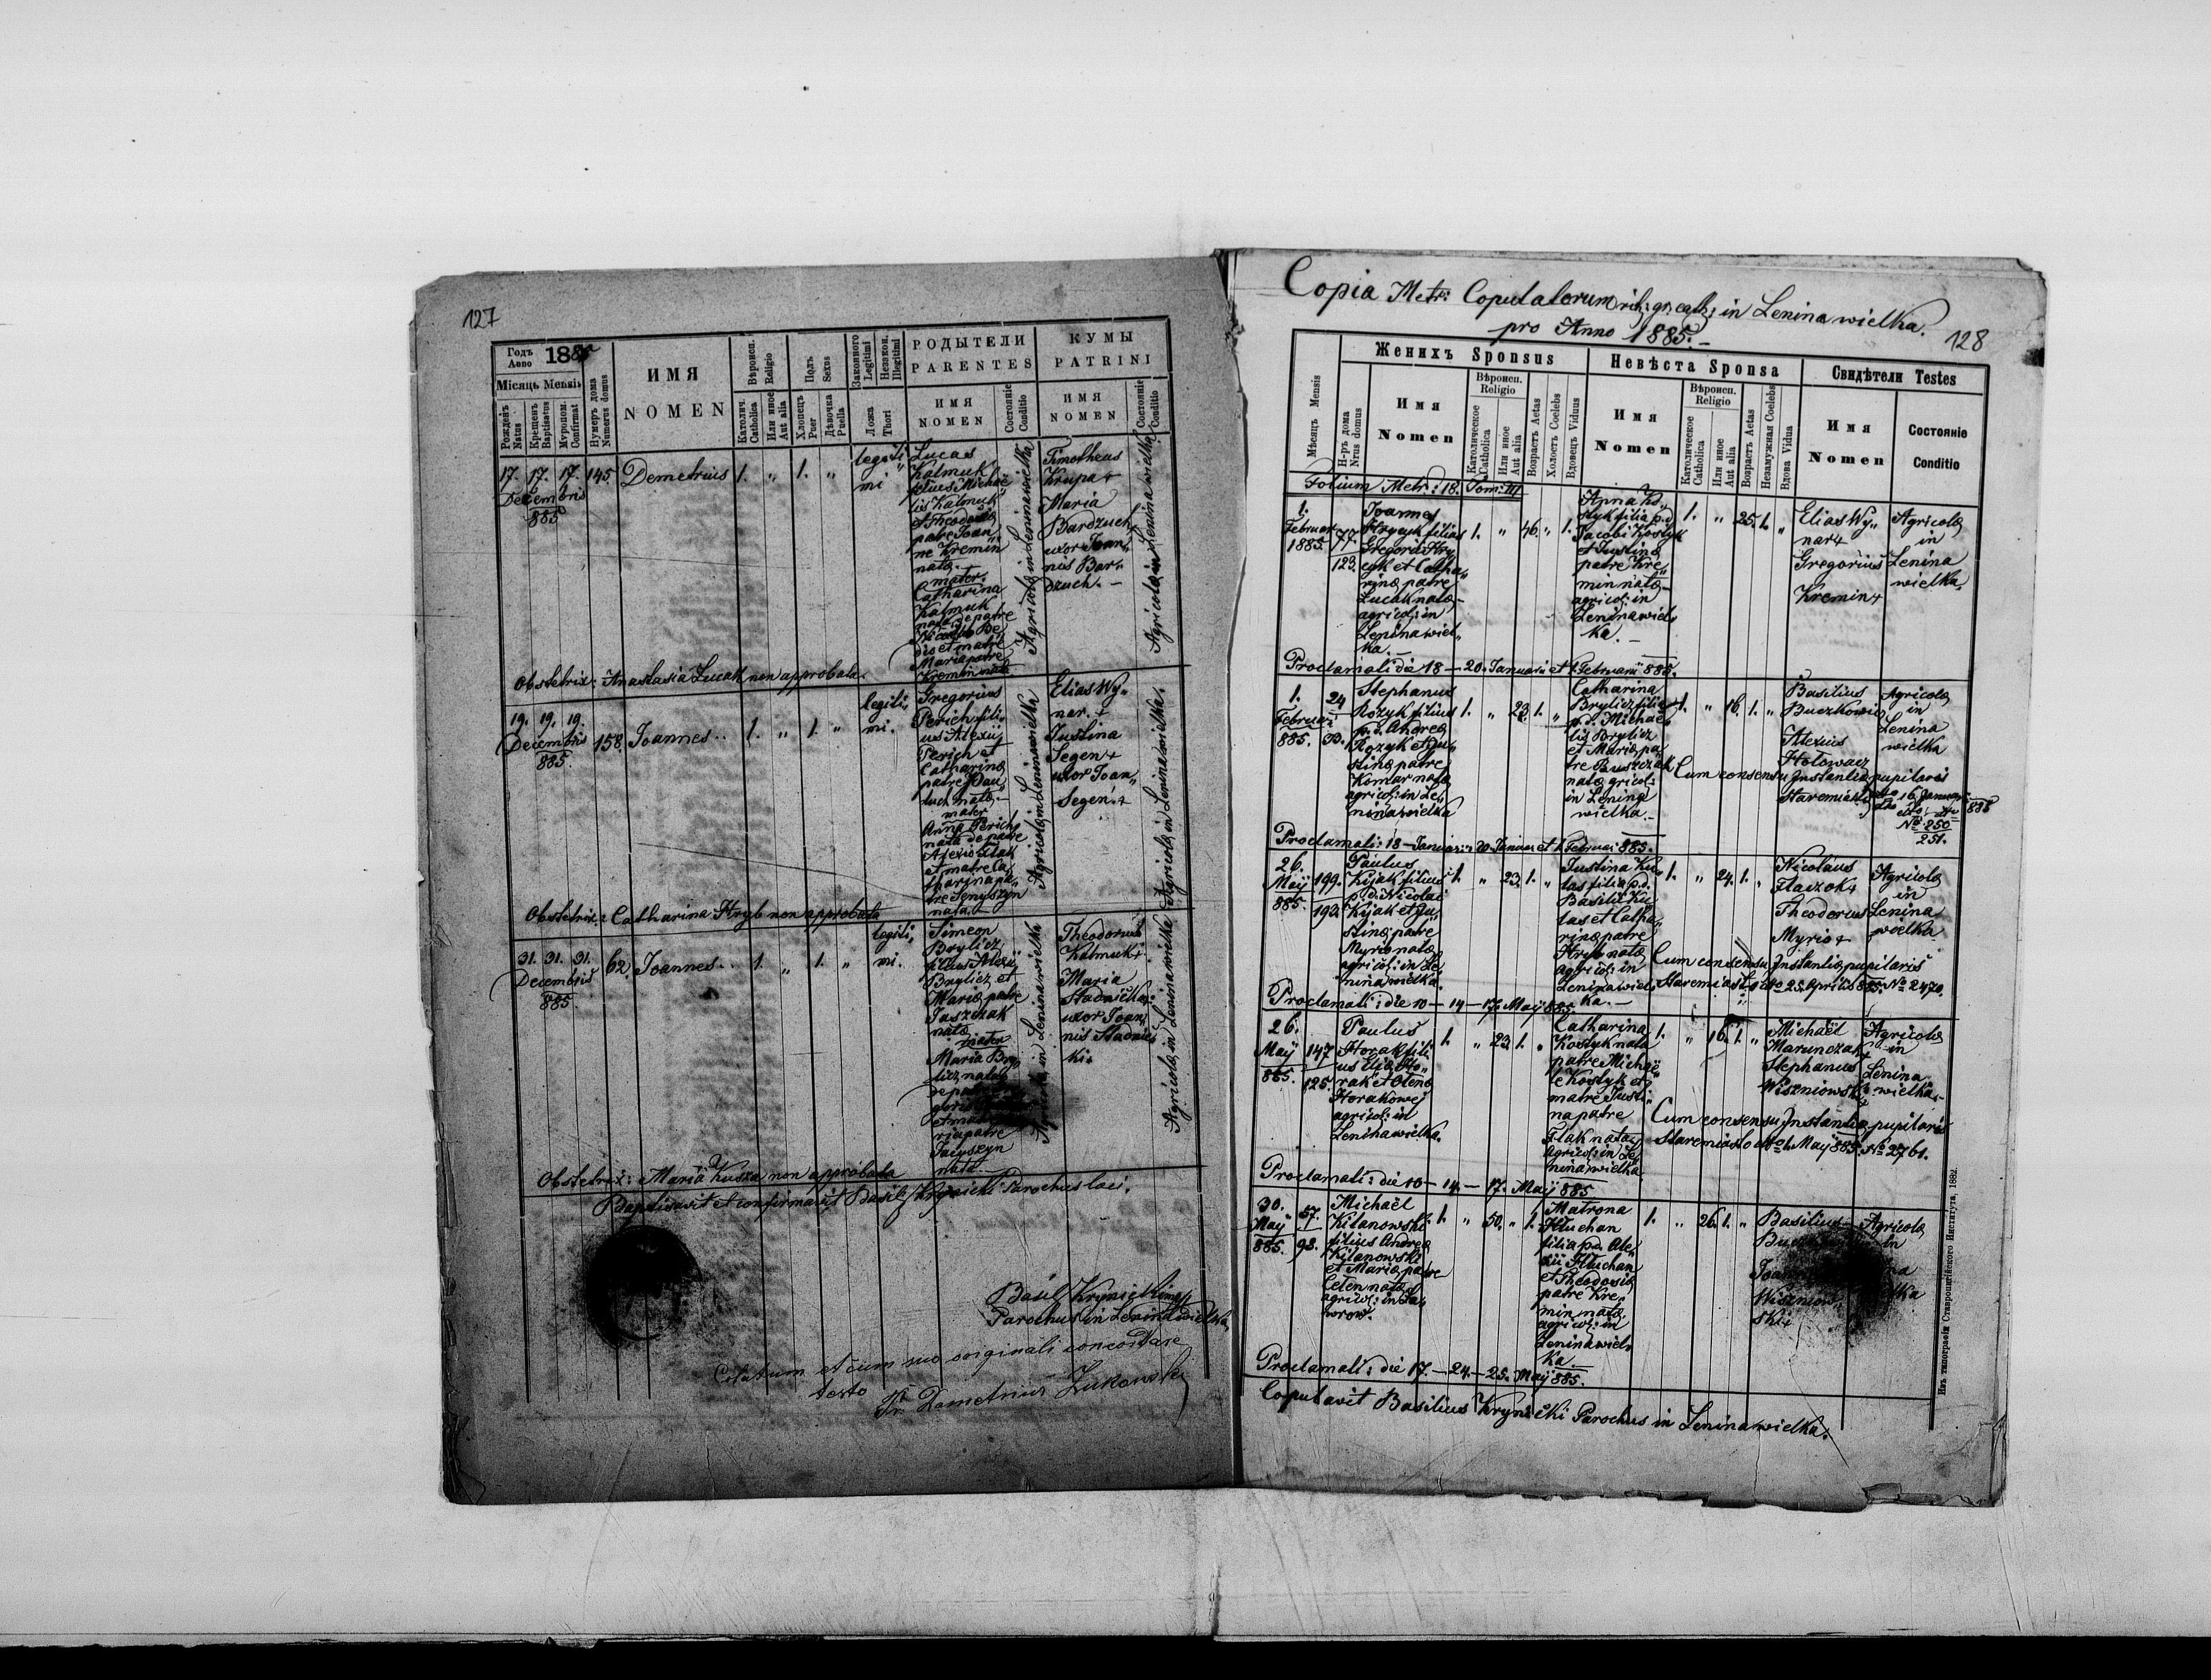 127
Годъ Anno 1885
Місяць Mensis
Рожденъ Natus
Крещенъ Baptisatus
Мѵропом. Confirmat
Нумеръ дома Numerus domus
ИМЯ
NOMEN
Вѣроисп. Religio
Католич. Catholica
Или иное Aut alia
Полъ Sexus
Хлопецъ Puer
Дѣвочка Puella
Законного Legitimi
Незакон. Illegitimi
Ложа Thori
РОДЫТЕЛИ
PARENTES
ИМЯ
NOMEN
Состояніе Conditio
КУМЫ
PATRINI
ИМЯ
NOMEN
Состояніе Conditio
17. 17. 17.
Decembris
885
145
Demetrius
1. „ 1. „
legiti„
mi
Lucas
Kalmuk
filius Michaë
lis Kalmuk
et Theodora
patre Joan„
ne Kremin
nata.
mater.
Catharina
Kalmuk
nata de patre
dis et matre
Maria patre
Kremin nata
Agricola in Leninawielka
Timotheus
Krupa +
Maria
Bardzuch
uxor Joan„
nis Bar„
dzuch. –
Agricola in Leninawielka
Obstetrix: Anastasia Lucak non approbata.
19. 19. 19.
Decembris
885.
158.
Joannes..
1. „ 1. „
legiti„
mi.
Gregorius
Perich fili„
us Alexii
Perich et
Catharina
patre Pau„
luch nata. –
mater
Anna Perich
nata de patre
Alexio Flak
et matre Ca„
tharina pa„
tre Senyszyn
nata. –
Agricola in Leninawielka
Elias Wy„
nar. +
Justina
Segen +
uxor Joan„
Segen. +
Agricola in Leninawielka.
Obstetrix: Catharina Hryb non approbata
31. 31. 31.
Decembris
885.
62.
Joannes..
1. „ 1. „
legiti„
mi.
Simeon
Brylicz
filius Alexii
Brylicz et
Maria patre
Jaszczak
nata
mater
Maria Bry„
licz nata
de patre
ria patre
Jacyszyn
nata. –
Agricola in Leninawielka
Theodorus
Kalmuk +
Maria
Stadnicka
uxor Joan„
nis Stadnic„
ki.
Agricola in Leninawielka
Obstetrix: Maria Kusza non approbata
Baptisavit et confirmavit Basili Krynicki Parochus loci.
Basil Krynicki mp
Parochus in Leninawielka
Citatum et cum suo originali concordare
testo
Fr. Demetrius Zukowski
Copia Metr: Copulatorum rit: gr. cath: in Lenina wielka.
pro Anno 1885. –
128
Мѣсяць Mensis
Н-ръ дома N-rus domus
Женихъ Sponsus
Имя
Nomen
Вѣроисп. Religio
Католическое Catholica
Или иное Aut alia
Возрастъ Aetas
Холостъ Coelebs
Вдовецъ Viduus
Невѣста Sponsa
Имя
Nomen
Вѣроисп. Religio
Католическое Catholica
Или иное Aut alia
Возрастъ Aetas
Незамужная Coelebs
Вдова Vidua
Свидѣтели Testes
Имя
Nomen
Состояніе
Conditio
Folium Metr: 18. Tom: III
1.
Februar
1885.
77.
123.
Joannes
Hrycyk filius
Gregorii Hry
cyk et Catha„
rina patre
Lucak nata –
agricol: in
Leninawiel„
ka. –
1. „ 46. „ 1.
Anna Ko„
styk filia p.d.
Jacobi Kostyk
et Justina
patre Kre„
min nata –
agricol: in
Leninawiel„
ka. –
1. „ 25. 1. „
Elias Wy„
nar +
Gregorius
Kremin +
Agricola
in
Lenina
wielka.
Proclamati die 18 – 20. Januarii et 1. Februarii 885.
1.
Februari
885.
24
33.
Stephanus
Kozyk filius
p.d. Andrea
Kozyk et Ju„
stina patre
Komar nata
agricol: in Le„
ninawielka
1. „ 23. 1. „
Catharina
Brylicz filia
p.d. Michaë„
lis Brylicz
et Maria pa„
tre Buszczak
nata agricol:
in Lenina
wielka. –
1. „ 16. 1. „
Basilius
Buczkowic
Alexius
Hołowacz
Agricola
in
Lenina
wielka
Cum consensu Instantia pupilaris
Staremiasto dto 16 Januar 885
No 250
251.
Proclamati: 18 – Januar: 20. Januar et 1. Februar 885.
26.
Maÿ
885.
199.
192.
Paulus
Kijak filius
p.d. Nicolai
Kijak et Ju„
stina patre
Myrio nata
agricol: in Le„
ninawielka.
1. „ 23. 1. „
Justina Ku„
las filia p.d.
Basilii Ku„
las et Catha„
rina patre
Hryb nata
agricol: in
Leninawiel„
ka. –
1. „ 24. 1. „
Nicolaus
Flaczok +
Theodorus
Myrio +
Agricola
in
Lenina
wielka
Cum consensu Instantia pupilaris
Staremiasto dto 25 Aprilis 885. No 2470.
Proclamati: die 10 – 14 – 17. Maÿ 885.
26.
Maÿ
885.
147
125.
Paulus
Horak fili„
us Elia Ho„
rak et Olena
Horakowej
agricol: in
Leninawielka.
1. „ 23. 1. „
Catharina
Kostyk nata
patre Michaë„
le Kostyk et
matre Justi„
na patre
Flak nata
Agricol: in Le„
ninawielka.
1. „ 16. 1. „
Michaël
Marunczak +
Stephanus
Wiszniowski
Agricola
in
Lenina
wielka.
Cum consensu Instantia pupilaris
Staremiasto dto 1. Maÿ 885. No 2761.
Proclamati: die 10 – 14. – 17. Maÿ 885
30.
Maÿ
885.
57.
93.
Michaël
Kitanowski
filius Andrea
Kitanowski
et Maria patre
Celen nata
agricol: in La„
wrow.
1. „ 50. „ 1.
Matrona
Kluchan
filia p.d. Ale„
xii Kluchan
et Theodosia
patre Kre„
min nata
agricol: in
Leninawiel„
ka.
1. „ 26. 1. „
Basilius
Wiszniow„
ski
Agricola
in
Proclamati: die 17. – 24. – 25. Maÿ 885.
Copulavit Basilius Krynicki Parochus in Leninawielka.
Изъ типографіи Ставропигійского Института, 1882.